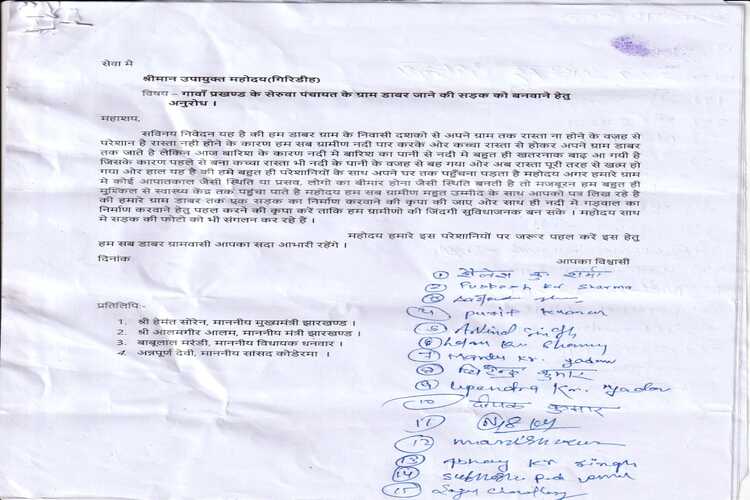 सेवा मे
श्रीमान उपायुक्त महोदय(गिरिडीह)
विषय – गावाँ प्रखण्ड के सेरुवा पंचायत के ग्राम डाबर जाने की सड़क को बनवाने हेतु
अनुरोध ।
महाशय,
सविनय निवेदन यह है की हम डाबर ग्राम के निवासी दशको से अपने ग्राम तक रास्ता ना होने के वजह से
परेशान है रास्ता नही होने के कारण हम सब ग्रामीण नदी पार करके ओर कच्चा रास्ता से होकर अपने ग्राम डाबर
तक जाते है लेकिन आज बारिश के कारण नदी मे बारिश का पानी से नदी मे बहुत ही खतरनाक बाढ़ आ गयी है
जिसके कारण पहले से बना कच्चा रास्ता भी नदी के पानी के वजह से बह गया ओर अब रास्ता पूरी तरह से खत्म हो
गया ओर हाल यह है की हमे बहुत ही परेशानियों के साथ अपने घर तक पहुँचना पड़ता है महोदय अगर हमारे ग्राम
मे कोई आपातकाल जैसी स्थिति या प्रसव, लोगो का बीमार होना जैसी स्थिति बनती है तो मजबूरन हम बहुत ही
मुश्किल से स्वास्थ्य केंद्र तक पहुंचा पाते है महोदय हम सब ग्रामीण बहुत उम्मीद के साथ आपको पत्र लिख रहे है
की हमारे ग्राम डाबर तक एक सड़क का निर्माण करवाने की कृपा की जाए ओर साथ ही नदी मे गड़वाल का
निर्माण करवाने हेतु पहल करने की कृपा करें ताकि हम ग्रामीणो की जिंदगी सुविधाजनक बन सके । महोदय साथ
मे सड़क की फोटो को भी संगलन कर रहे है ।
महोदय हमारे इस परेशानियों पर जरूर पहल करें इस हेतु
हम सब डाबर ग्रामवासी आपका सदा आभारी रहेंगे ।
दिनांक
आपका विश्वासी
1 शैलेश कु शर्मा
2 Kr Sharma
3
4 Punit Kumar
5 Arvind Singh
6
7 Kr. Yadav
8 कुमार
9 Upendra Kr. Yadav
10 दीपक कुमार
11
12
13 Abhay Kr Singh
14
15 Choudhary
प्रतिलिपि:-
1. श्री हेमंत सोरेन, माननीय मुख्यमंत्री झारखण्ड ।
2. श्री आलमगीर आलम, माननीय मंत्री झारखण्ड ।
3. बाबूलाल मरंडी, माननीय विधायक धनवार ।
4. अन्नपूर्ण देवी, माननीय सांसद कोडेरमा ।